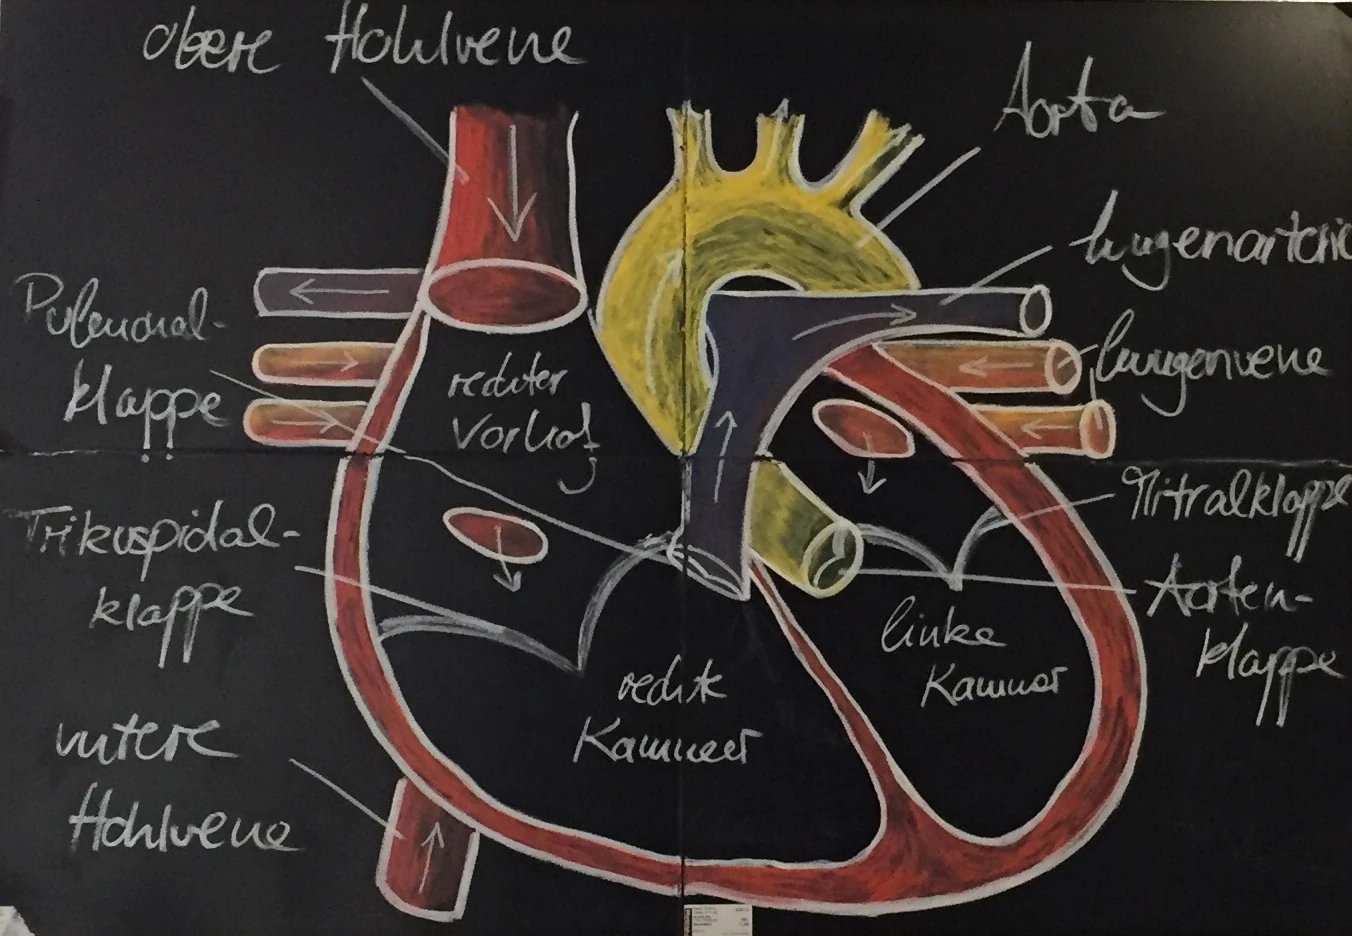 obere Hohlvene
Aorta
Lungenarterie
Pulmonal-
klappe
Lungenvene
rechter
Vorhof
Mitralklappe
Trikuspidal-
klappe
Aorten-
klappe
linke
Kammer
rechte
Kammer
untere
Hohlvene